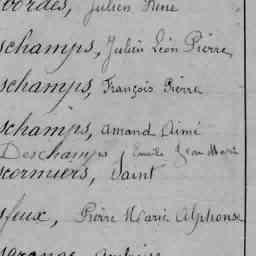 ordes, Julien René
schamps, Julien Léon Pierre
schamps, François Pierre
schamps, Amand Aimé
Deschamps, Emile Jean Marie
cormiers, Saint
feux, Pierre Marie Alphonse